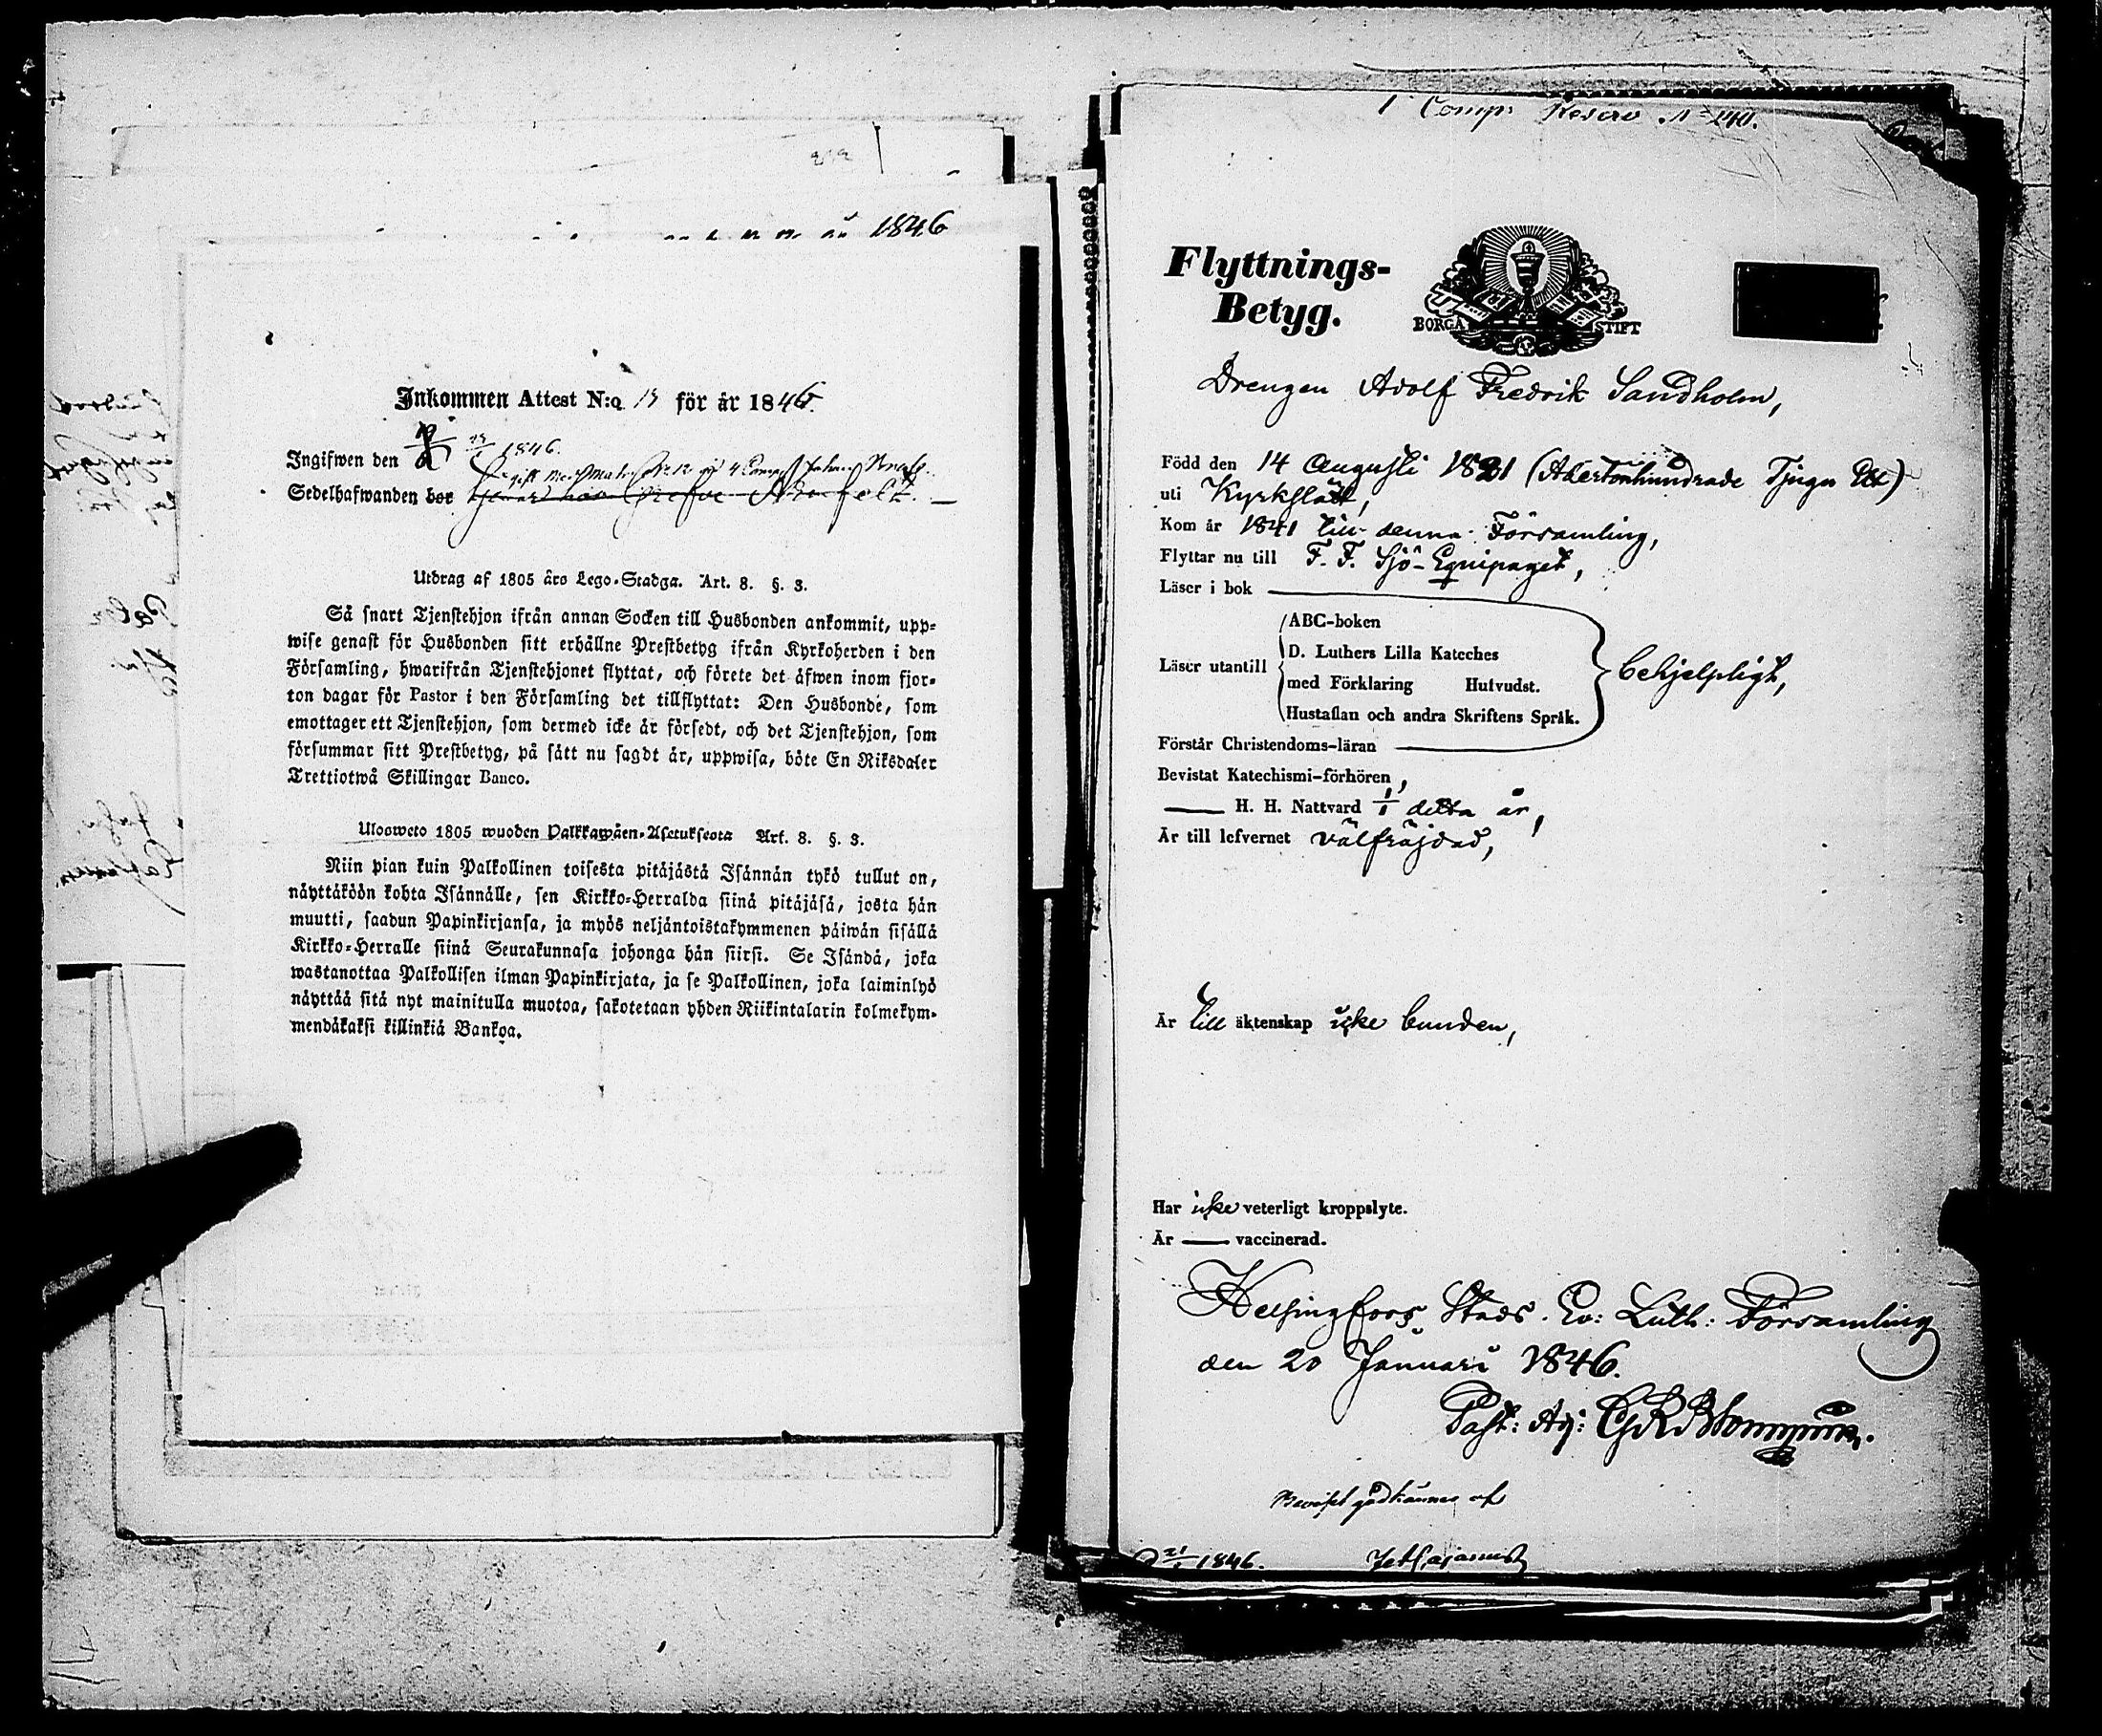 1846
Inkommen Attest N:o 13 för år 1846.
Ingifwen den 1846.
Sedelhafwanden bor
Utdrag af 1805 års Lego-Stadga. Art. 8. §. 3.
Så snart Tjenstehjon ifrån annan Socken till Husbonden ankommit, upp-
wise genast för Husbonden sitt erhållne Prestbetyg ifrån Kyrkoherden i den
Församling, hwarifrån Tjenstehjonet flyttat, och förete det äfwen inom fjor-
ton dagar för Pastor i den Församling det tillflyttat: Den Husbonde, som
emottager ett Tjenstehjon, som dermed icke är försedt, och det Tjenstehjon, som
försummar sitt Prestbetyg, på sätt nu sagdt är, uppwisa, böte En Riksdaler
Trettiotwå Skillingar Banco.
Ulosweto 1805 wuoden Palkkawäen-Asetuksesta Art. 8. §. 3.
Niin pian kuin Palkollinen toisesta pitäjästä Isännän tykö tullut on,
näyttäköön kohta Isännälle, sen Kirkko-Herralda siinä pitäjäsä, josta hän
muutti, saadun Papinkirjansa, ja myös neljäntoistakymmenen päiwän sisällä
Kirkko-Herralle siinä Seurakunnasa johonga hän siirsi. Se Isändä, joka
wastanottaa Palkollisen ilman Papinkirjata, ja se Palkollinen, joka laiminlyö
näyttää sitä nyt mainitulla muotoa, sakotetaan yhden Riikintalarin kolmekym-
mendäkaksi killinkiä Bankoa.
1 Comp: Reserv N:o 240.
Flyttnings-
Betyg.
BORGÅ STIFT
Drengen Adolf Fredrik Sandholm,
Född den 14 Augusti 1821 (Adertonhundrade Tjugu Ett)
uti Kyrkslätt,
Kom år 1841 till denna Församling,
Flyttar nu till F. F. Sjö-Equipaget,
Läser i bok
Läser utantill
ABC-boken
D. Luthers Lilla Kateches
med Förklaring Hufvudst.
Hustaflan och andra Skriftens Språk.
behjelpligt,
Förstår Christendoms-läran
Bevistat Katechismi-förhören,
H. H. Nattvard 1/1 detta år,
Är till lefvernet välfräjdad,
Är till äktenskap icke bunden,
Har icke veterligt kroppslyte.
Är vaccinerad.
Helsingfors Stads Ev: Luth: Församling
den 20 Januari 1846.
Past: Adj:
Beviset godkännes af
21/1 1846.